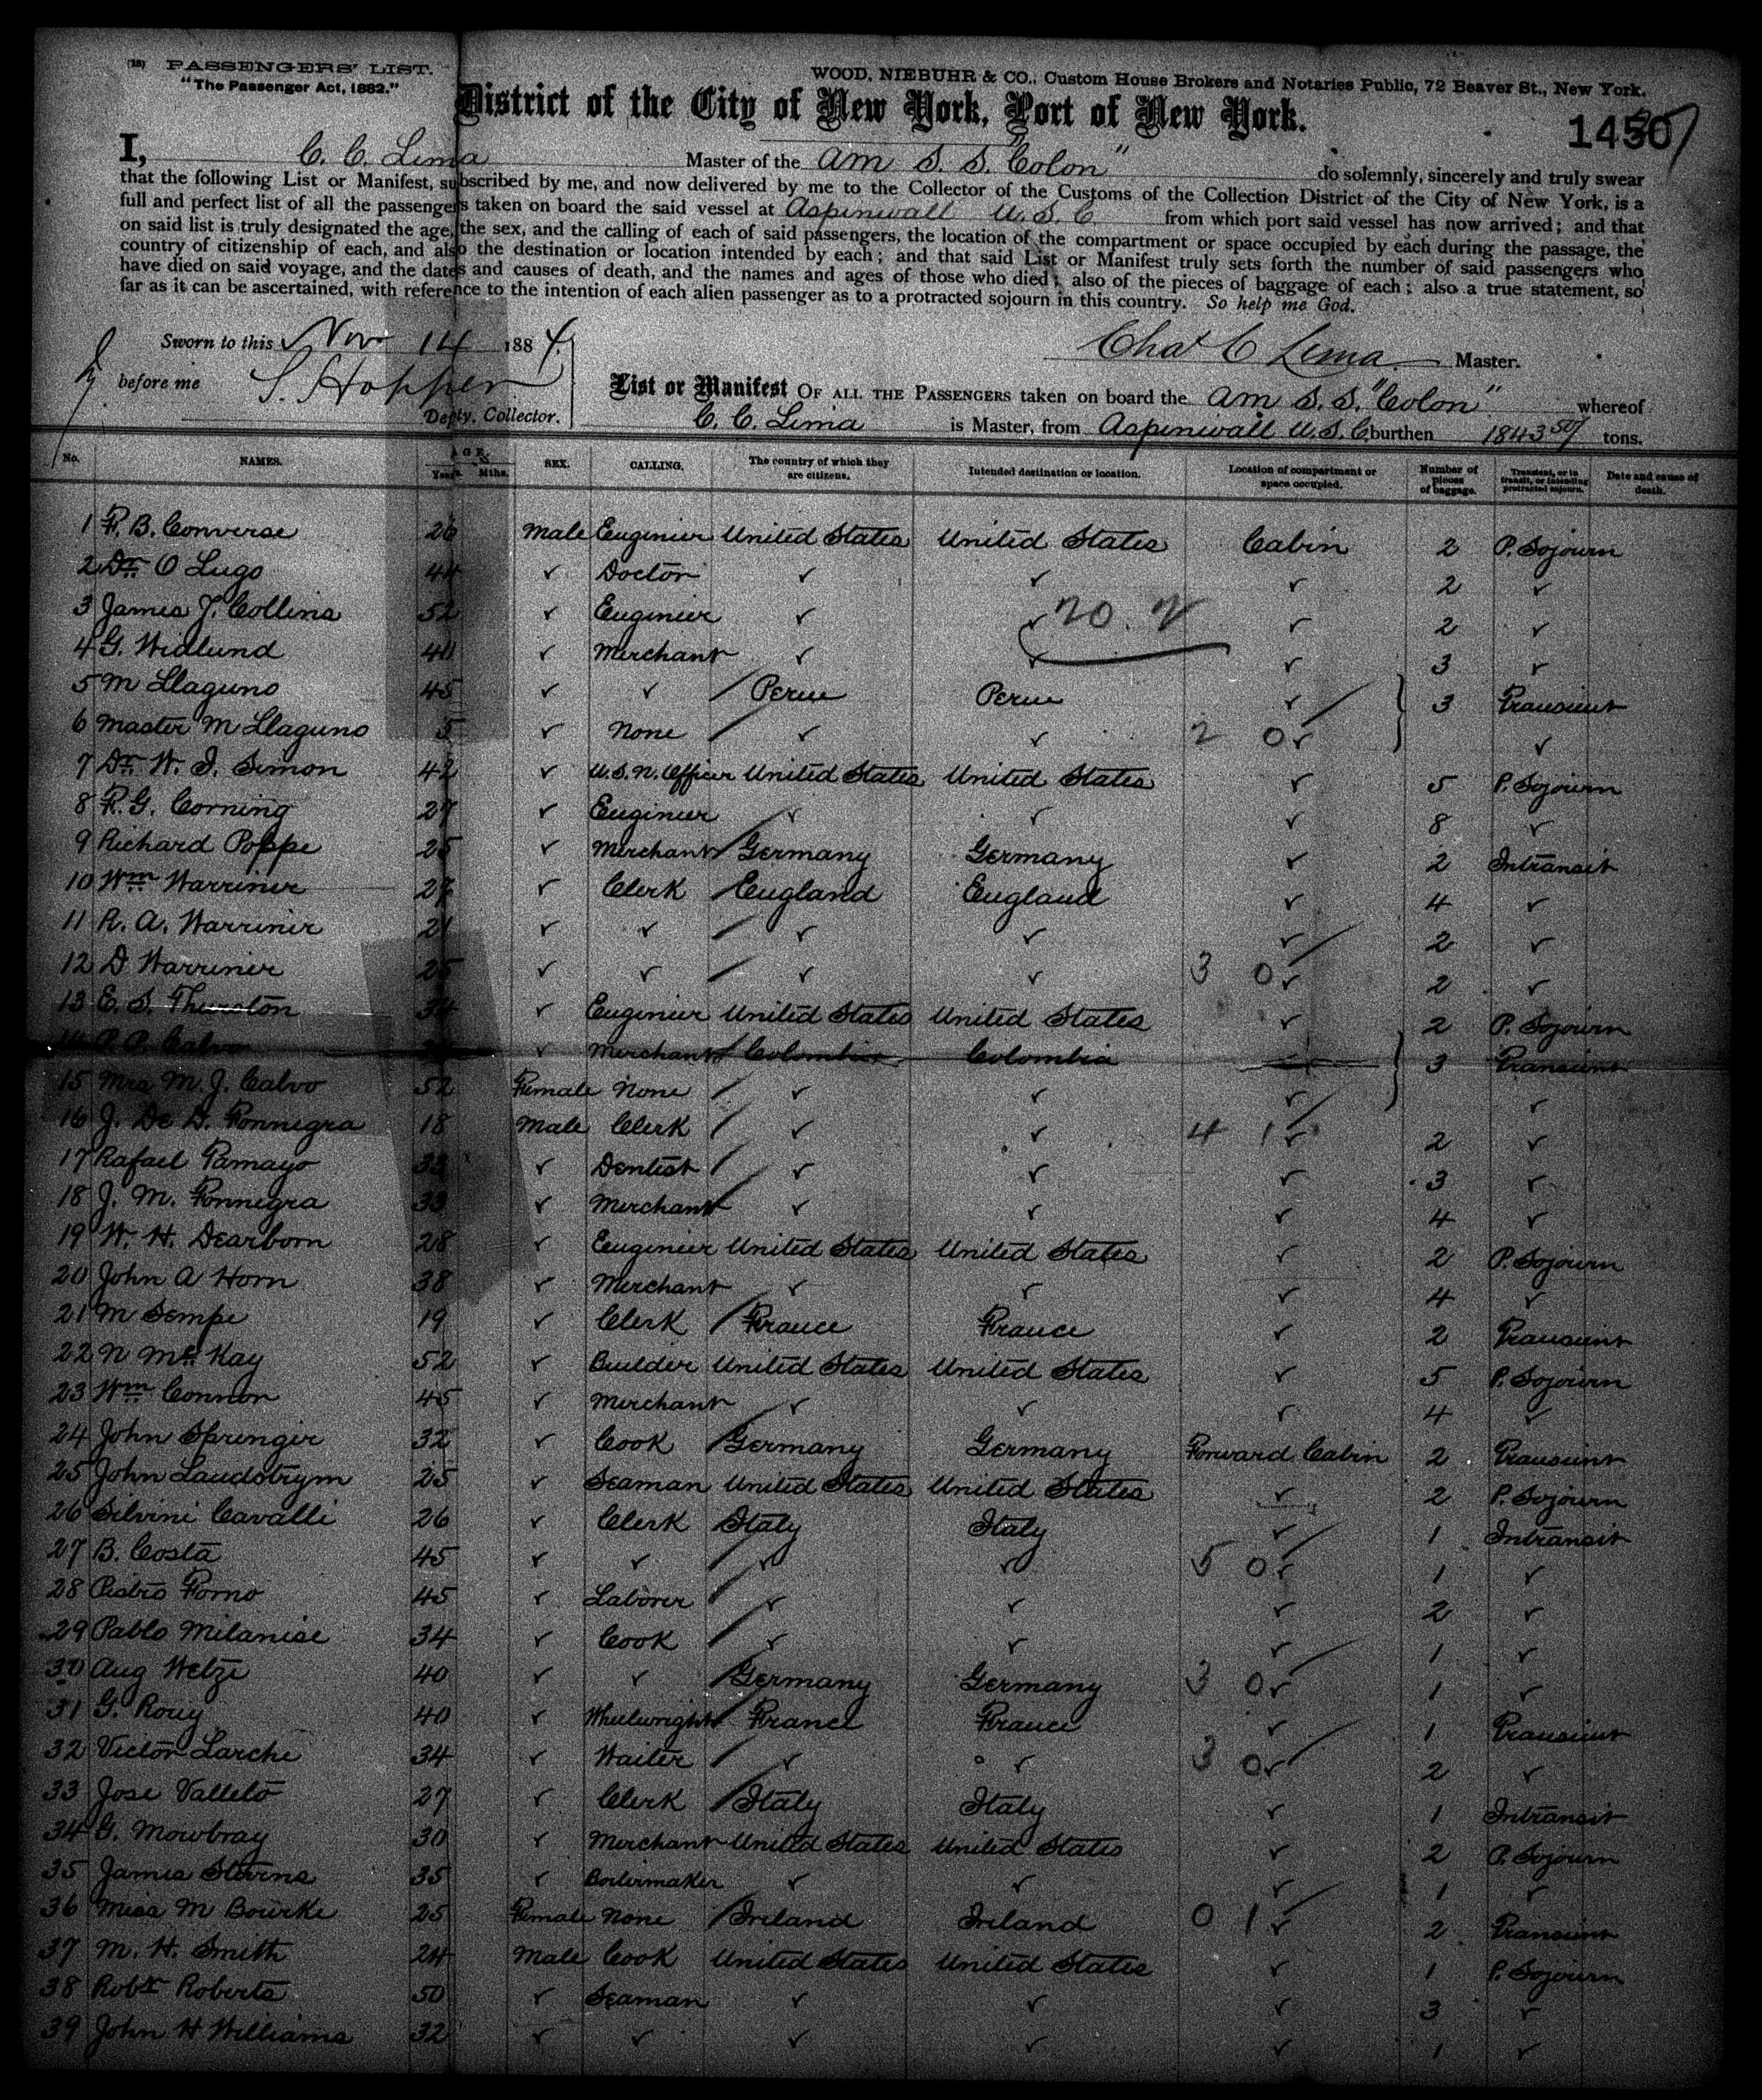 (18) PASSENGERS' LIST.
"The Passenger Act, 1882."
WOOD, NIEBUHR & CO., Custom House Brokers and Notaries Public, 72 Beaver St., New York.
District of the City of New York, Port of New York.
1450
I, C. C. Lima Master of the Am S. S. "Colon" do solemnly, sincerely and truly swear
that the following List or Manifest, subscribed by me, and now delivered by me to the Collector of the Customs of the Collection District of the City of New York, is a
full and perfect list of all the passengers taken on board the said vessel at Aspinwall U.S.C. from which port said vessel has now arrived; and that
on said list is truly designated the age, the sex, and the calling of each of said passengers, the location of the compartment or space occupied by each during the passage, the
country of citizenship of each, and also the destination or location intended by each; and that said List or Manifest truly sets forth the number of said passengers who
have died on said voyage, and the dates and causes of death, and the names and ages of those who died; also of the pieces of baggage of each; also a true statement, so
far as it can be ascertained, with reference to the intention of each alien passenger as to a protracted sojourn in this country. So help me God.
Sworn to this Nov 14 1884
Chas C Lima Master.
before me S. Hopper
Depty. Collector.
List or Manifest OF ALL THE PASSENGERS taken on board the Am S.S. "Colon" whereof
C. C. Lima is Master, from Aspinwall U.S.C. burthen 1843 50/ tons.
No. NAMES. AGE. Years. Mths. SEX. CALLING. The country of which they are citizens. Intended destination or location. Location of compartment or space occupied. Number of pieces of baggage. Transient, or in transit, or intending protracted sojourn. Date and cause of death.
1 F. B. Converse 26 Male Enginier United States United States Cabin 2 P. Sojourn
2 Dr. O Lugo 44 ✓ Doctor ✓ ✓ ✓ 2 ✓
3 James T. Collins 52 ✓ Enginier ✓ ✓ 20. 2 ✓ 2 ✓
4 G. Widlund 40 ✓ Merchant ✓ ✓ ✓ 3 ✓
5 M Llaguno 45 ✓ ✓ Peru Peru ✓ 3 Transient
6 Master M Llaguno 5 ✓ None ✓ ✓ 2 0 ✓ ✓
7 Dr. W. J. Simon 42 ✓ U.S.N. Officer United States United States ✓ 5 P. Sojourn
8 F. G. Corning 27 ✓ Enginier ✓ ✓ ✓ 8 ✓
9 Richard Poppe 25 ✓ Merchant Germany Germany ✓ 2 Intransit
10 Wm Warriner 27 ✓ Clerk England England ✓ 4 ✓
11 R. A. Warriner 21 ✓ ✓ ✓ ✓ ✓ 2 ✓
12 D Warriner 25 ✓ ✓ ✓ ✓ 3 0 ✓ 2 ✓
13 E. S. Thurston 34 ✓ Enginier United States United States ✓ 2 P. Sojourn
14 P. P. Calvo ✓ Merchant Colombia Colombia 3 Transient
15 Mrs M. J. Calvo 52 Female None ✓ ✓ ✓ ✓
16 J. De D. Fonnegra 18 Male Clerk ✓ ✓ 4 1 ✓ 2 ✓
17 Rafael Tamayo 33 ✓ Dentist ✓ ✓ ✓ 3 ✓
18 J. M. Fonnegra 33 ✓ Merchant ✓ ✓ ✓ 4 ✓
19 W. H. Dearborn 28 ✓ Enginier United States United States ✓ 2 P. Sojourn
20 John A Horn 38 ✓ Merchant ✓ ✓ ✓ 4 ✓
21 M Sempe 19 ✓ Clerk France France ✓ 2 Transient
22 N McKay 52 ✓ Builder United States United States ✓ 5 P. Sojourn
23 Wm Connor 45 ✓ Merchant ✓ ✓ ✓ 4 ✓
24 John Springer 32 ✓ Cook Germany Germany Forward Cabin 2 Transient
25 John Laudstrym 25 ✓ Seaman United States United States ✓ 2 P. Sojourn
26 Silvini Cavalli 26 ✓ Clerk Italy Italy ✓ 1 Intransit
27 B. Costa 45 ✓ ✓ ✓ ✓ 5 0 ✓ 1 ✓
28 Pietro Forno 45 ✓ Laborer ✓ ✓ ✓ 2 ✓
29 Pablo Milanise 34 ✓ Cook ✓ ✓ ✓ 1 ✓
30 Aug Wetze 40 ✓ ✓ Germany Germany 3 0 ✓ 1 ✓
31 G. Rouy 40 ✓ Wheelwright France France ✓ 1 Transient
32 Victor Larche 34 ✓ Waiter ✓ ✓ 3 0 ✓ 2 ✓
33 Jose Valleto 27 ✓ Clerk Italy Italy ✓ 1 Intransit
34 G. Mowbray 30 ✓ Merchant United States United States ✓ 2 P. Sojourn
35 James Stevens 35 ✓ Boilermaker ✓ ✓ ✓ 1 ✓
36 Miss M Bourke 25 Female None Ireland Ireland 0 1 ✓ 2 Transient
37 M. H. Smith 24 Male Cook United States United States ✓ 1 P. Sojourn
38 Robt Roberts 50 ✓ Seaman ✓ ✓ ✓ 3 ✓
39 John H Williams 32 ✓ ✓ ✓ ✓ ✓ 1 ✓